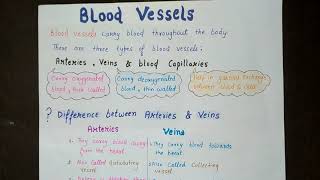 Blood Vessels
Blood vessels carry blood throughout the body.
These are three types of blood vessels:
Arteries, Veins & blood Capillaries
Carry oxygenated
blood, thick walled
Carry deoxygenated
blood, thin walled
Help in gaseous exchange
between blood & cells
? Difference between Arteries & Veins
Arteries
Veins
They carry blood away
from the heart.
They carry blood towards
the heart.
Also Called distributing
vessel
Also Called Collecting
vessel